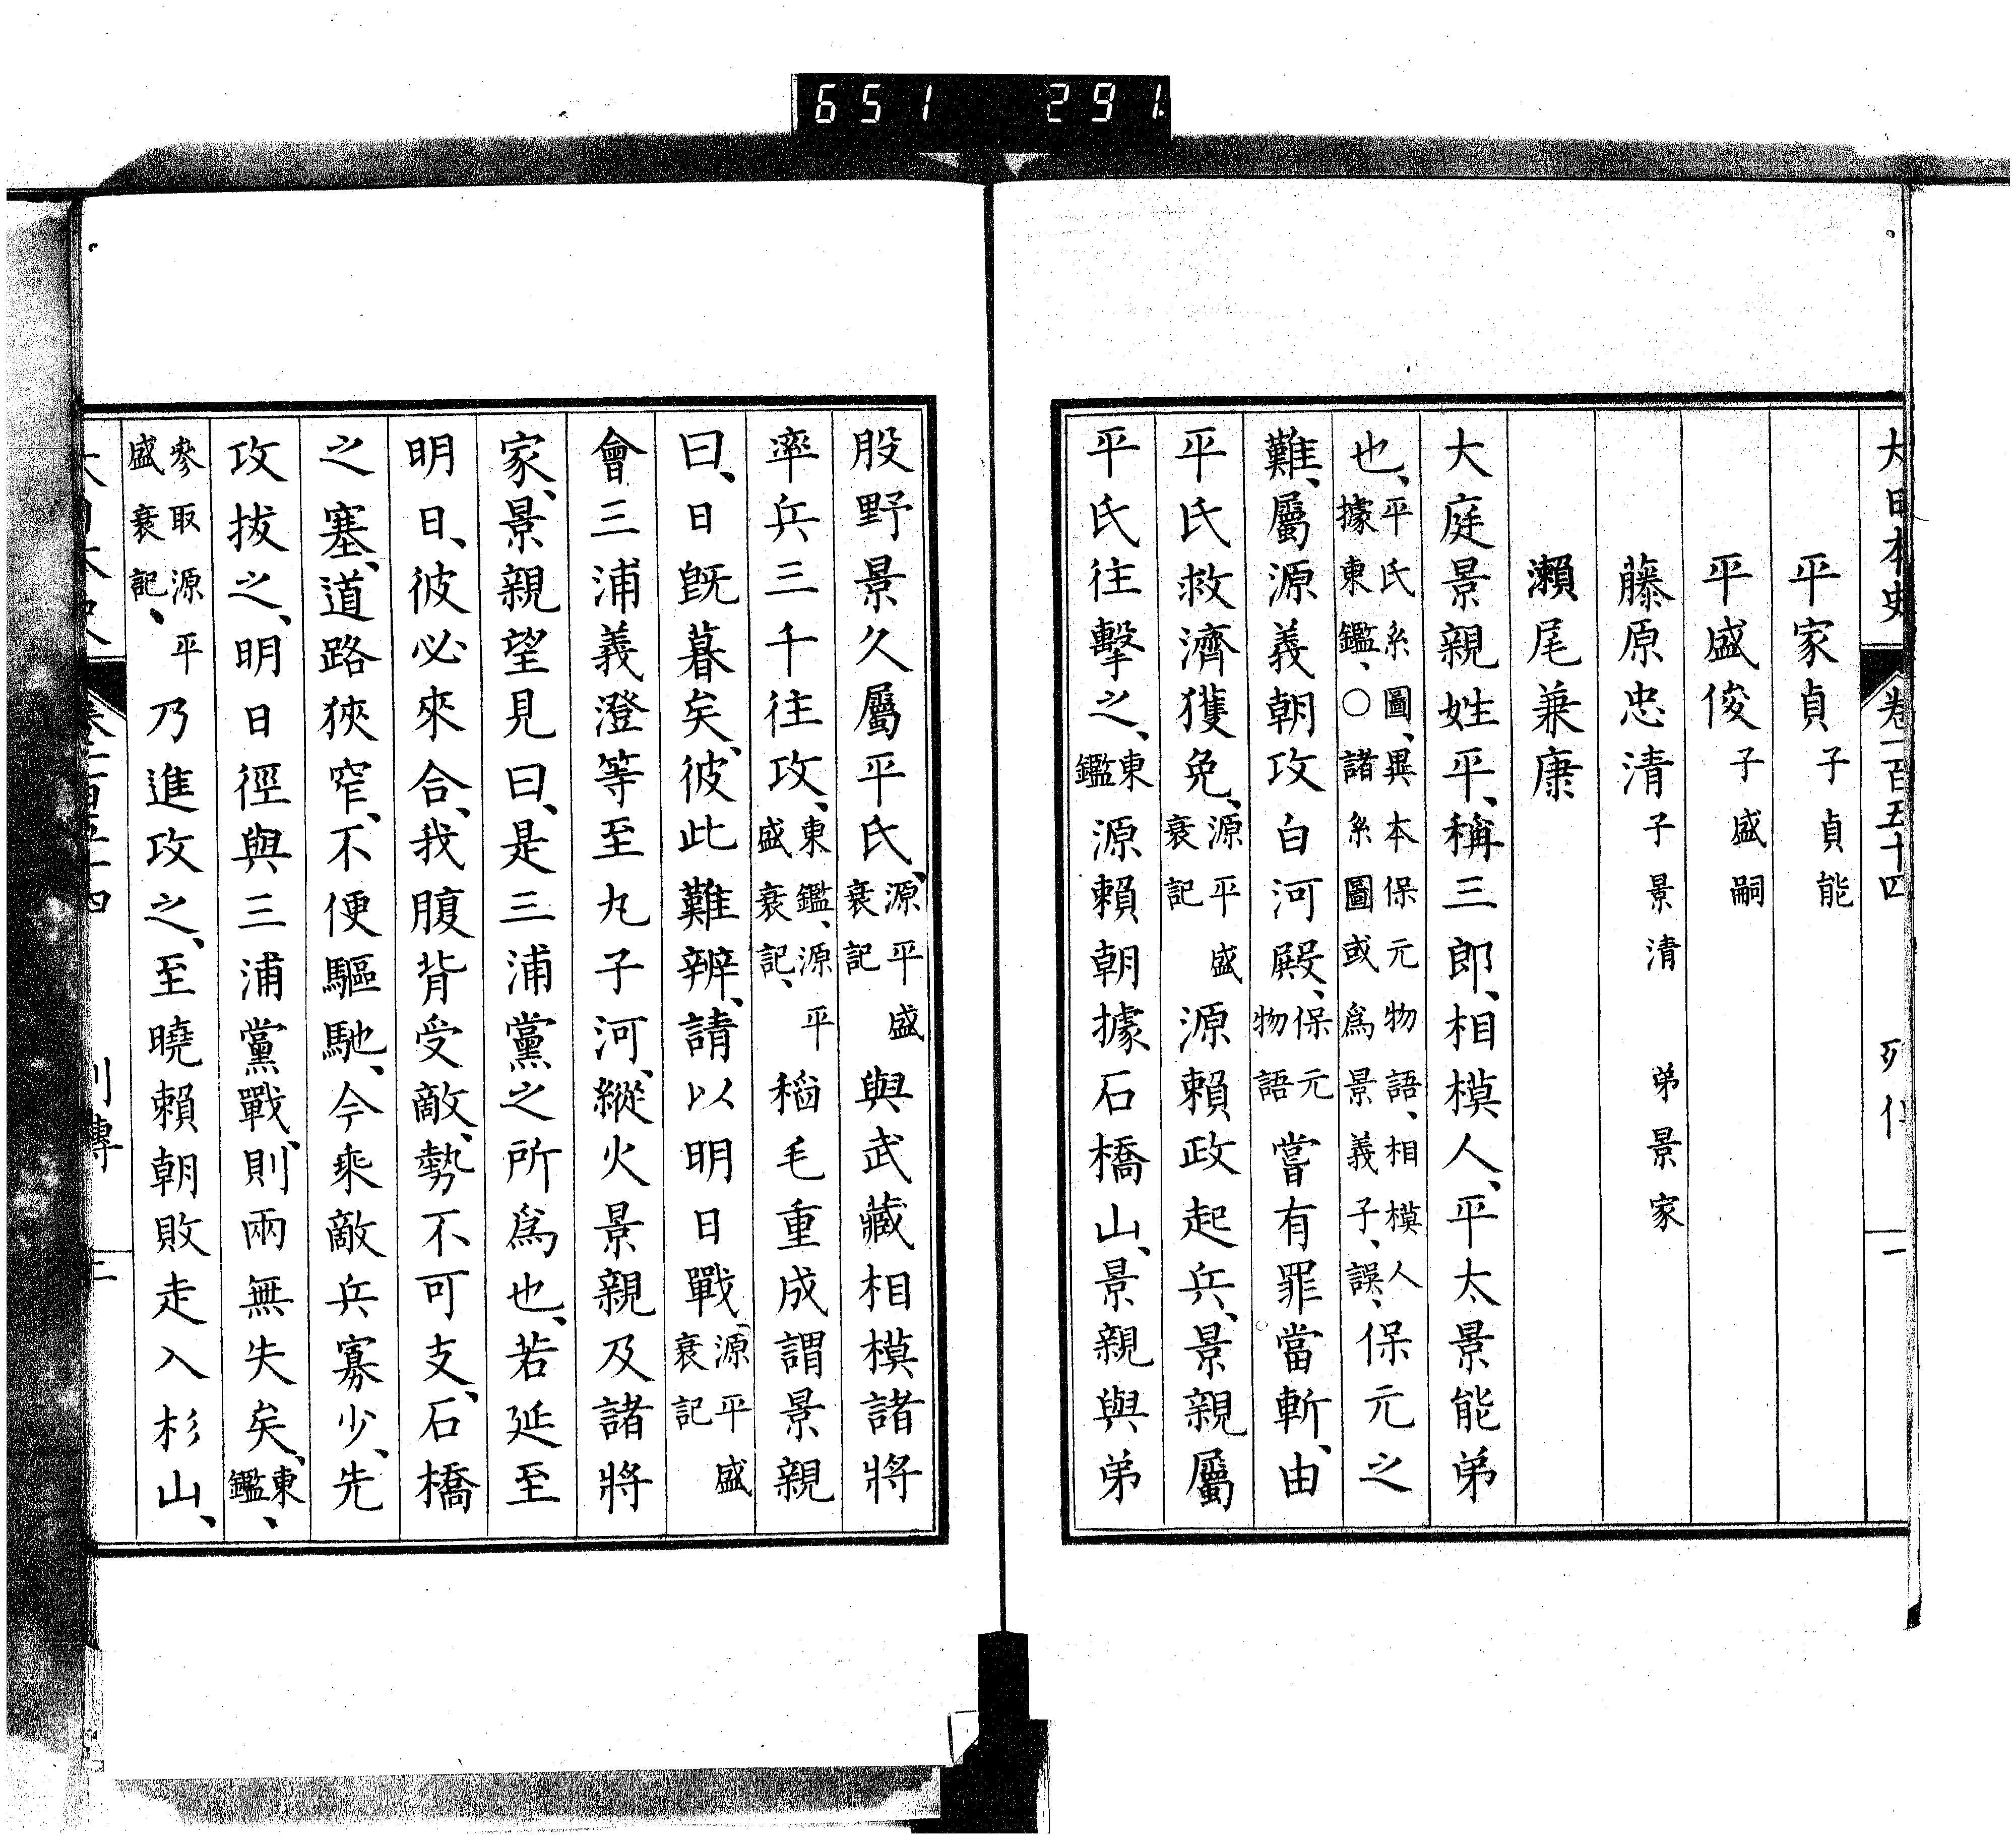 651 291
大日本史 卷一百五十四 列傳 一
平家貞 子貞能
平盛俊 子盛嗣
藤原忠清 子景清 弟景家
瀬尾兼康
大庭景親姓平、稱三郎、相模人、平太景能弟
也、平氏系圖、異本保元物語、相模人據東鑑、○諸系圖或爲景義子、誤、保元之
難、屬源義朝攻白河殿、保元物語嘗有罪當斬、由
平氏救濟獲免、源平盛衰記源賴政起兵、景親屬
平氏往擊之、東鑑源賴朝據石橋山、景親與弟
股野景久屬平氏、源平盛衰記與武藏相模諸將
率兵三千往攻、東鑑、源平盛衰記、稻毛重成謂景親
曰、日既暮矣、彼此難辨、請以明日戰、源平盛衰記
會三浦義澄等至丸子河、縱火景親及諸將
家、景親望見曰、是三浦黨之所爲也、若延至
明日、彼必來合、我腹背受敵、勢不可支、石橋
之塞、道路狹窄、不便驅馳、今乘敵兵寡少、先
攻拔之、明日徑與三浦黨戰、則兩無失矣、東鑑、
參取源平盛衰記、乃進攻之、至曉賴朝敗走入杉山、
大日本史 卷一百五十四 列傳 二